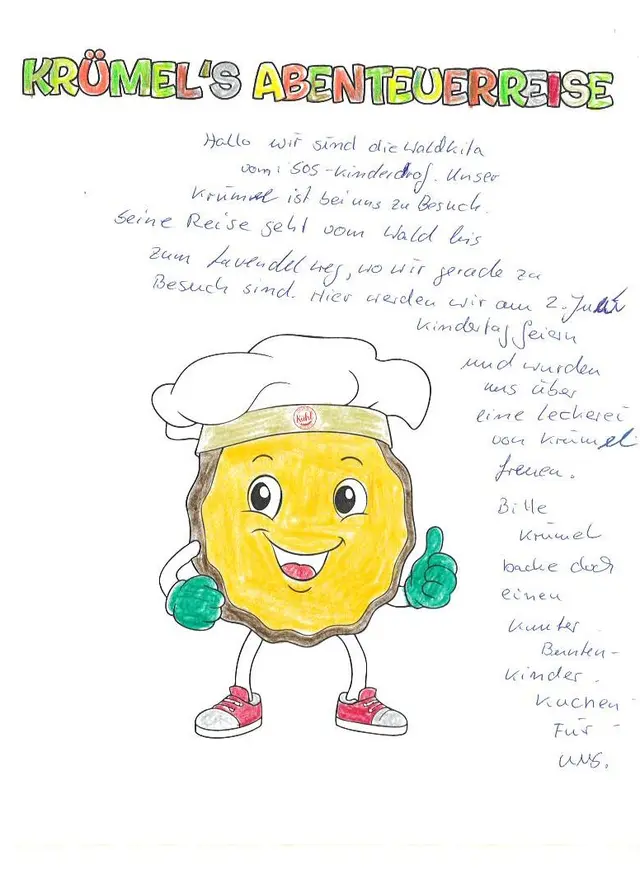 KRÜMEL'S ABENTEUERREISE
Hallo wir sind die Waldkita
vom: SOS-Kinderdrof. Unser
Krümel ist bei uns zu Besuch.
Seine Reise geht vom Wald bis
zum Lavendelweg, wo wir gerade zu
Besuch sind. Hier werden wir am 2. Juni
Kindertag feiern
und wurden
uns über
eine Leckerei
von Krümel
freuen.
Kuhl
Bitte
Krümel
backe doch
einen
Kunter
Bunten-
Kinder
Kuchen
Für
uns.